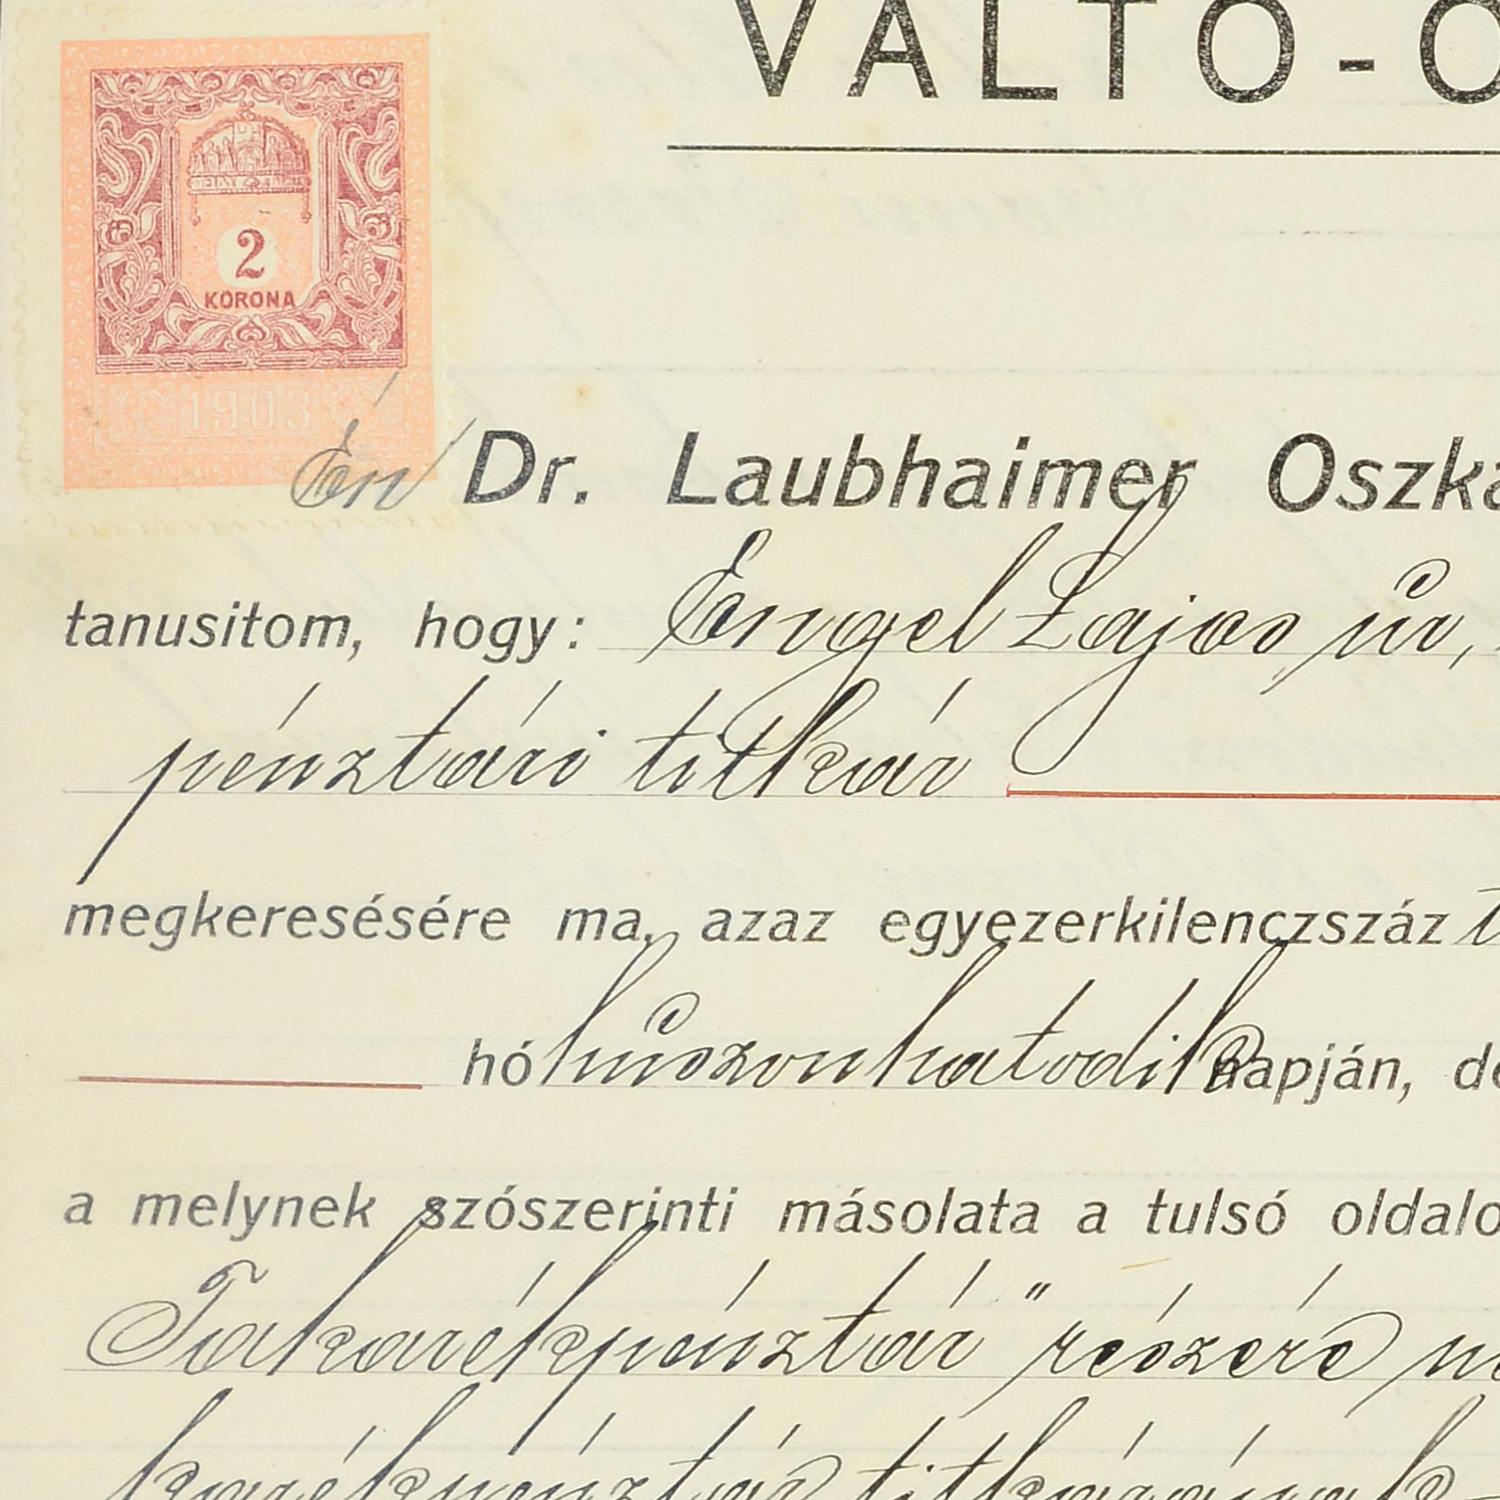 VÁLTÓ-Ó
2
KORONA
1903
Én Dr. Laubhaimer Oszká
tanusitom, hogy: Engel Lajos úr,
pénztári titkár
megkeresésére ma, azaz egyezerkilenczszáz t
hó huszonhatodik napján, de
a melynek szószerinti másolata a tulsó oldalo
Takarékpénztár" részére
karékpénztár titkárának